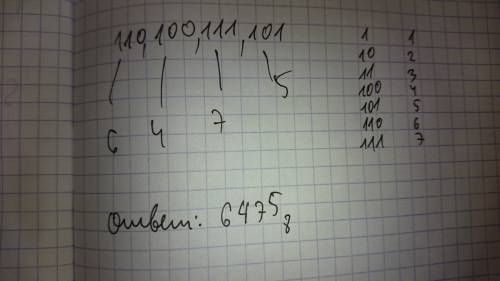 110,100,111,101
6 4 7 5
Ответ: 6475₈
1 1
10 2
11 3
100 4
101 5
110 6
111 7